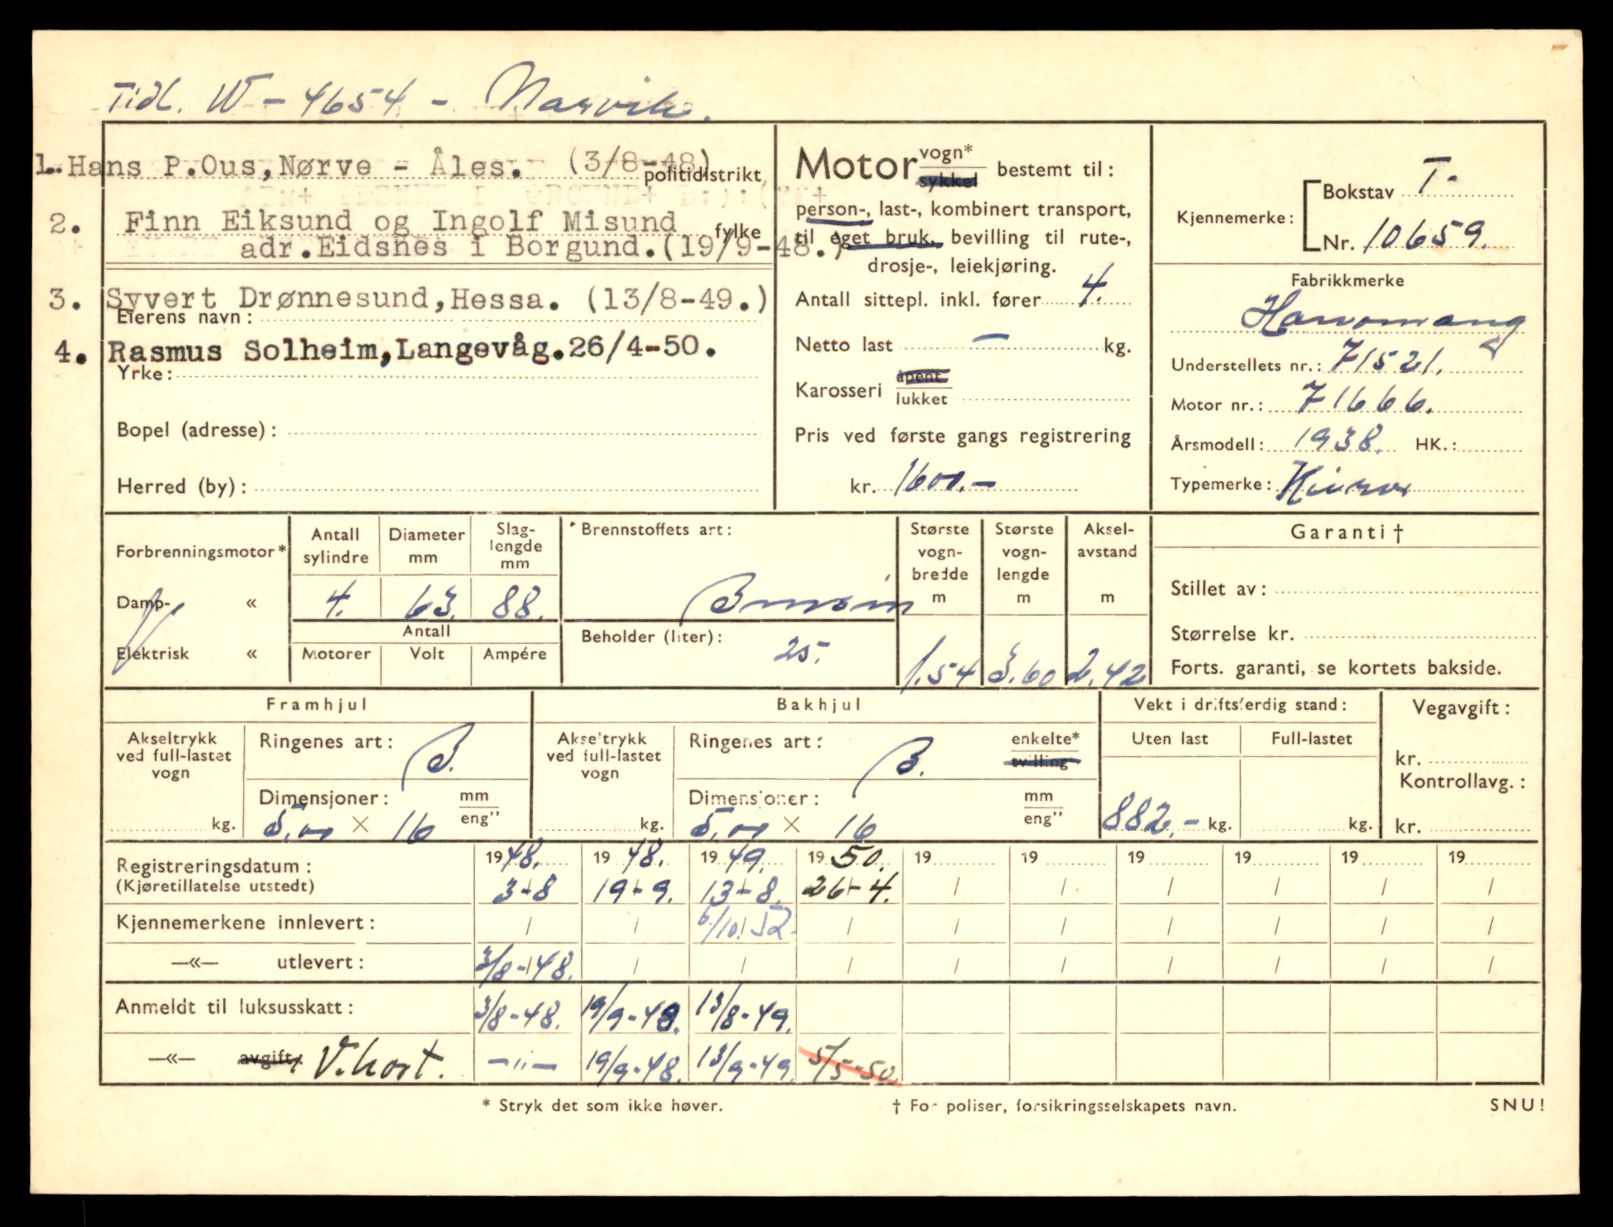 Tidl. W - 4654 - Narvik.
1. Hans P.Ous, Nørve - Åles. (3/8-48)
politidistrikt
2. Finn Eiksund og Ingolf Misund
fylke
adr. Eidsnes i Borgund. (19/9-48.)
3. Syvert Drønnesund, Hessa. (13/8-49.)
Eierens navn:
4. Rasmus Solheim, Langevåg. 26/4-50.
Yrke:
Bopel (adresse):
Herred (by):
Motor vogn* sykkel bestemt til:
person-, last-, kombinert transport,
til eget bruk, bevilling til rute-,
drosje-, leiekjøring.
Antall sittepl. inkl. fører 4.
Netto last — kg.
Karosseri åpent lukket
Pris ved første gangs registrering
kr. 1600.-
Kjennemerke: Bokstav T.
Nr. 10659.
Fabrikkmerke
Hanomang
Understellets nr.: 71521.
Motor nr.: 71666.
Årsmodell: 1938. HK.:
Typemerke:
Forbrenningsmotor*
Damp- «
Elektrisk «
Antall sylindre Diameter mm Slag-lengde mm
4. 63. 88.
Antall
Motorer Volt Ampére
* Brennstoffets art:
Bensin
Beholder (liter): 25.
Største vogn-bredde m
1.54
Største vogn-lengde m
3.60
Aksel-avstand m
2.42
Garanti †
Stillet av:
Størrelse kr.
Forts. garanti, se kortets bakside.
Framhjul
Akseltrykk ved full-lastet vogn
kg.
Ringenes art: B.
Dimensjoner: mm eng”
5.00 x 16
Bakhjul
Akseltrykk ved full-lastet vogn
kg.
Ringenes art: B. enkelte* tvilling
Dimensjoner: mm eng”
5.00 x 16
Vekt i driftsferdig stand:
Uten last Full-lastet
882.- kg. kg.
Vegavgift:
kr.
Kontrollavg.:
kr.
Registreringsdatum: 1948. 1948. 1949. 1950. 19 19 19 19 19 19
(Kjøretillatelse utstedt) 3/8 19/9. 13/8. 26/4. / / / / / /
Kjennemerkene innlevert: / / 6/10. 52. / / / / / / /
—«— utlevert: 3/8-48. / / / / / / / / /
Anmeldt til luksusskatt: 3/8-48. 19/9-48. 13/8-49.
—«— avgift: V.kort. -"- 19/9-48. 13/9-49. 5/5-50.
* Stryk det som ikke høver.
† For poliser, forsikringsselskapets navn.
SNU!